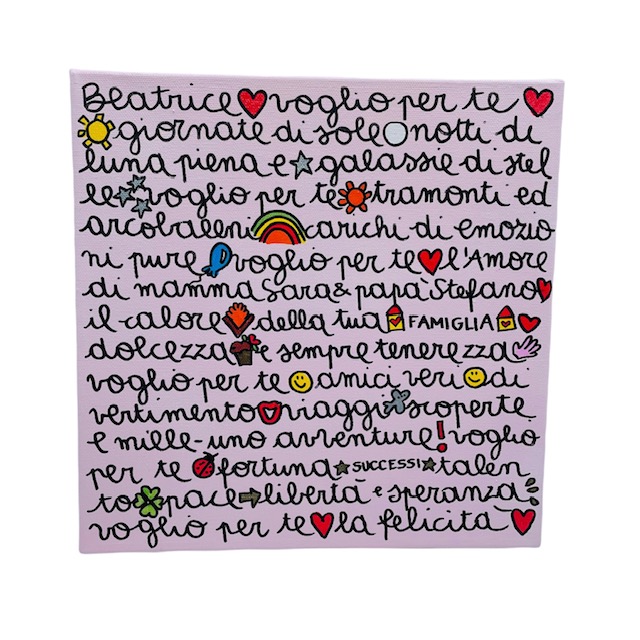 Beatrice voglio per te
giornate di sole notti di
luna piena e galassie di stel
le voglio per te tramonti ed
arcobaleni carichi di emozio
ni pure voglio per te l'Amore
di mamma Sara & papà Stefano
il calore della tua FAMIGLIA
dolcezza e sempre tenerezza
voglio per te amici veri di
vertimento viaggi scoperte
e mille-uno avventure! voglio
per te fortuna SUCCESSI talen
to pace libertà e speranza
voglio per te la felicità